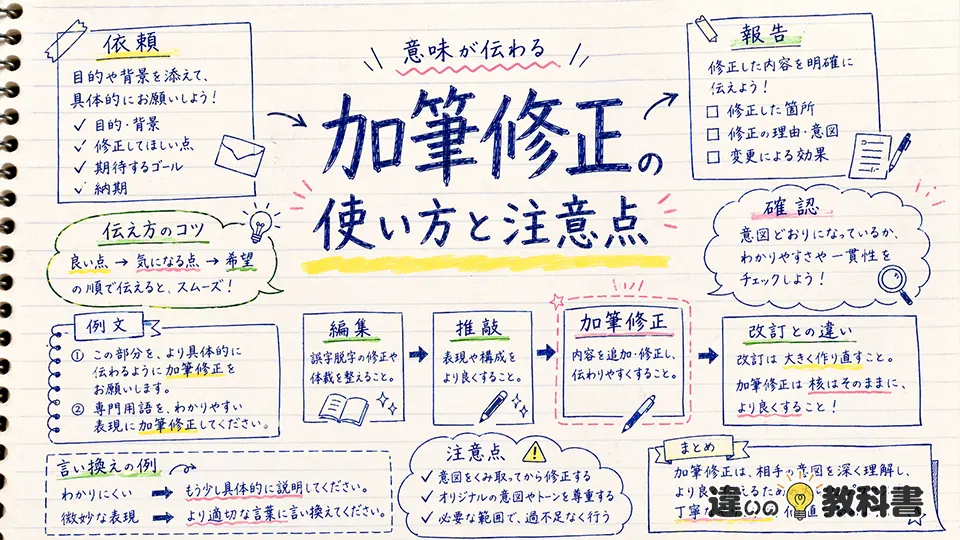 意味が伝わる
加筆修正の
使い方と注意点
依頼
目的や背景を添えて、
具体的にお願いしよう!
✓ 目的・背景
✓ 修正してほしい点
✓ 期待するゴール
✓ 納期
報告
修正した内容を明確に
伝えよう!
□ 修正した箇所
□ 修正の理由・意図
□ 変更による効果
伝え方のコツ
良い点 → 気になる点 → 希望
の順で伝えると、スムーズ!
確認
意図どおりになっているか、
わかりやすさや一貫性を
チェックしよう!
例文
① この部分を、より具体的に
伝わるように加筆修正を
お願いします。
② 専門用語を、わかりやすい
表現に加筆修正してください。
編集
誤字脱字の修正や
体裁を整えること。
推敲
表現や構成を
より良くすること。
加筆修正
内容を追加・修正し、
伝わりやすくすること。
改訂との違い
改訂は大きく作り直すこと。
加筆修正は核はそのままに、
より良くすること!
言い換えの例
わかりにくい ➡ もう少し具体的に説明してください。
微妙な表現 ➡ より適切な言葉に言い換えてください。
注意点
✓ 意図をくみ取ってから修正する
✓ オリジナルの意図やトーンを尊重する
✓ 必要な範囲で、過不足なく行う
まとめ
加筆修正は、相手の意図を深く理解し、
より良
えるため
丁寧
違いの教科書